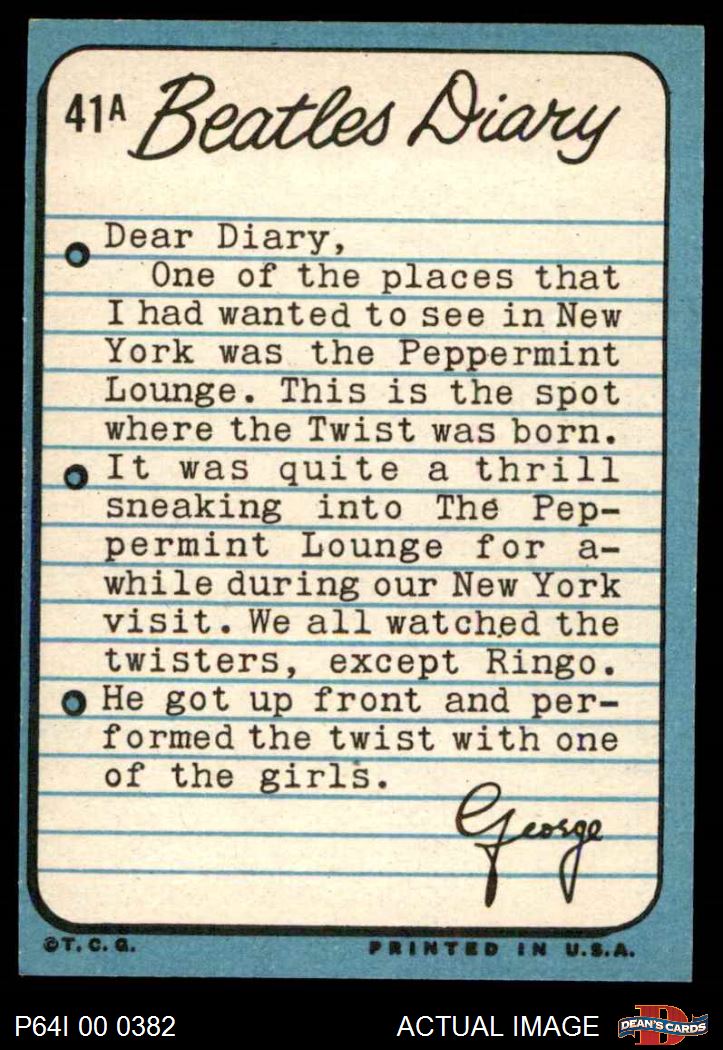 41A Beatles Diary
Dear Diary,
One of the places that
I had wanted to see in New
York was the Peppermint
Lounge. This is the spot
where the Twist was born.
It was quite a thrill
sneaking into The Pep-
permint Lounge for a-
while during our New York
visit. We all watched the
twisters, except Ringo.
He got up front and per-
formed the twist with one
of the girls.
George
©T.C.G. PRINTED IN U.S.A.
P64I 00 0382 ACTUAL IMAGE D DEAN'S CARDS